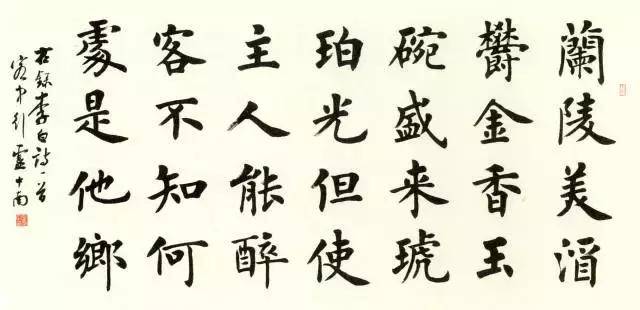 蘭陵美酒
欝金香玉
碗盛来琥
珀光但使
主人能醉
客不知何
處是他鄉
右錄李白詩一首
客中行盧中南